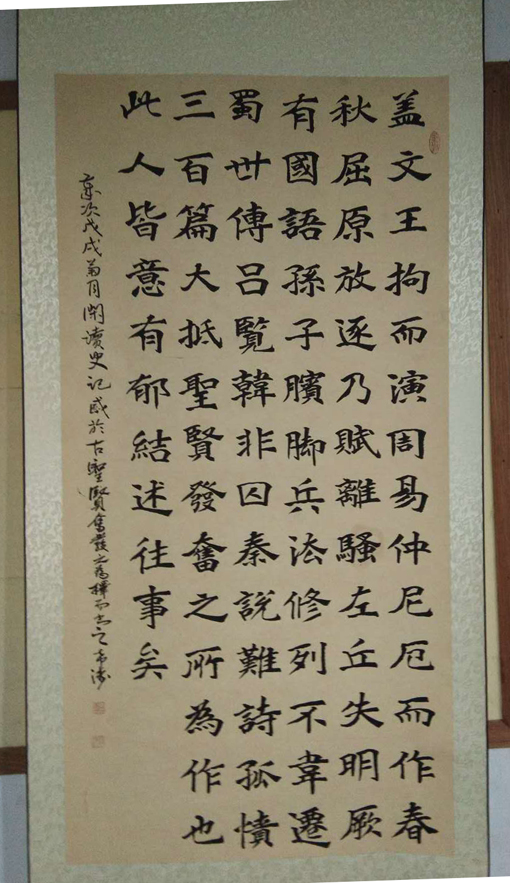 盖文王拘而演周易仲尼厄而作春
秋屈原放逐乃賦離騷左丘失明厥
有國語孫子臏脚兵法修列不韋遷
蜀世傳吕覽韓非囚秦説難詩孤憤
三百篇大抵聖賢發奮之所為作也
此人皆意有郁結述往事矣
歲次戊戌菊月閑讀史記感於古聖賢奮發之為擇而書之